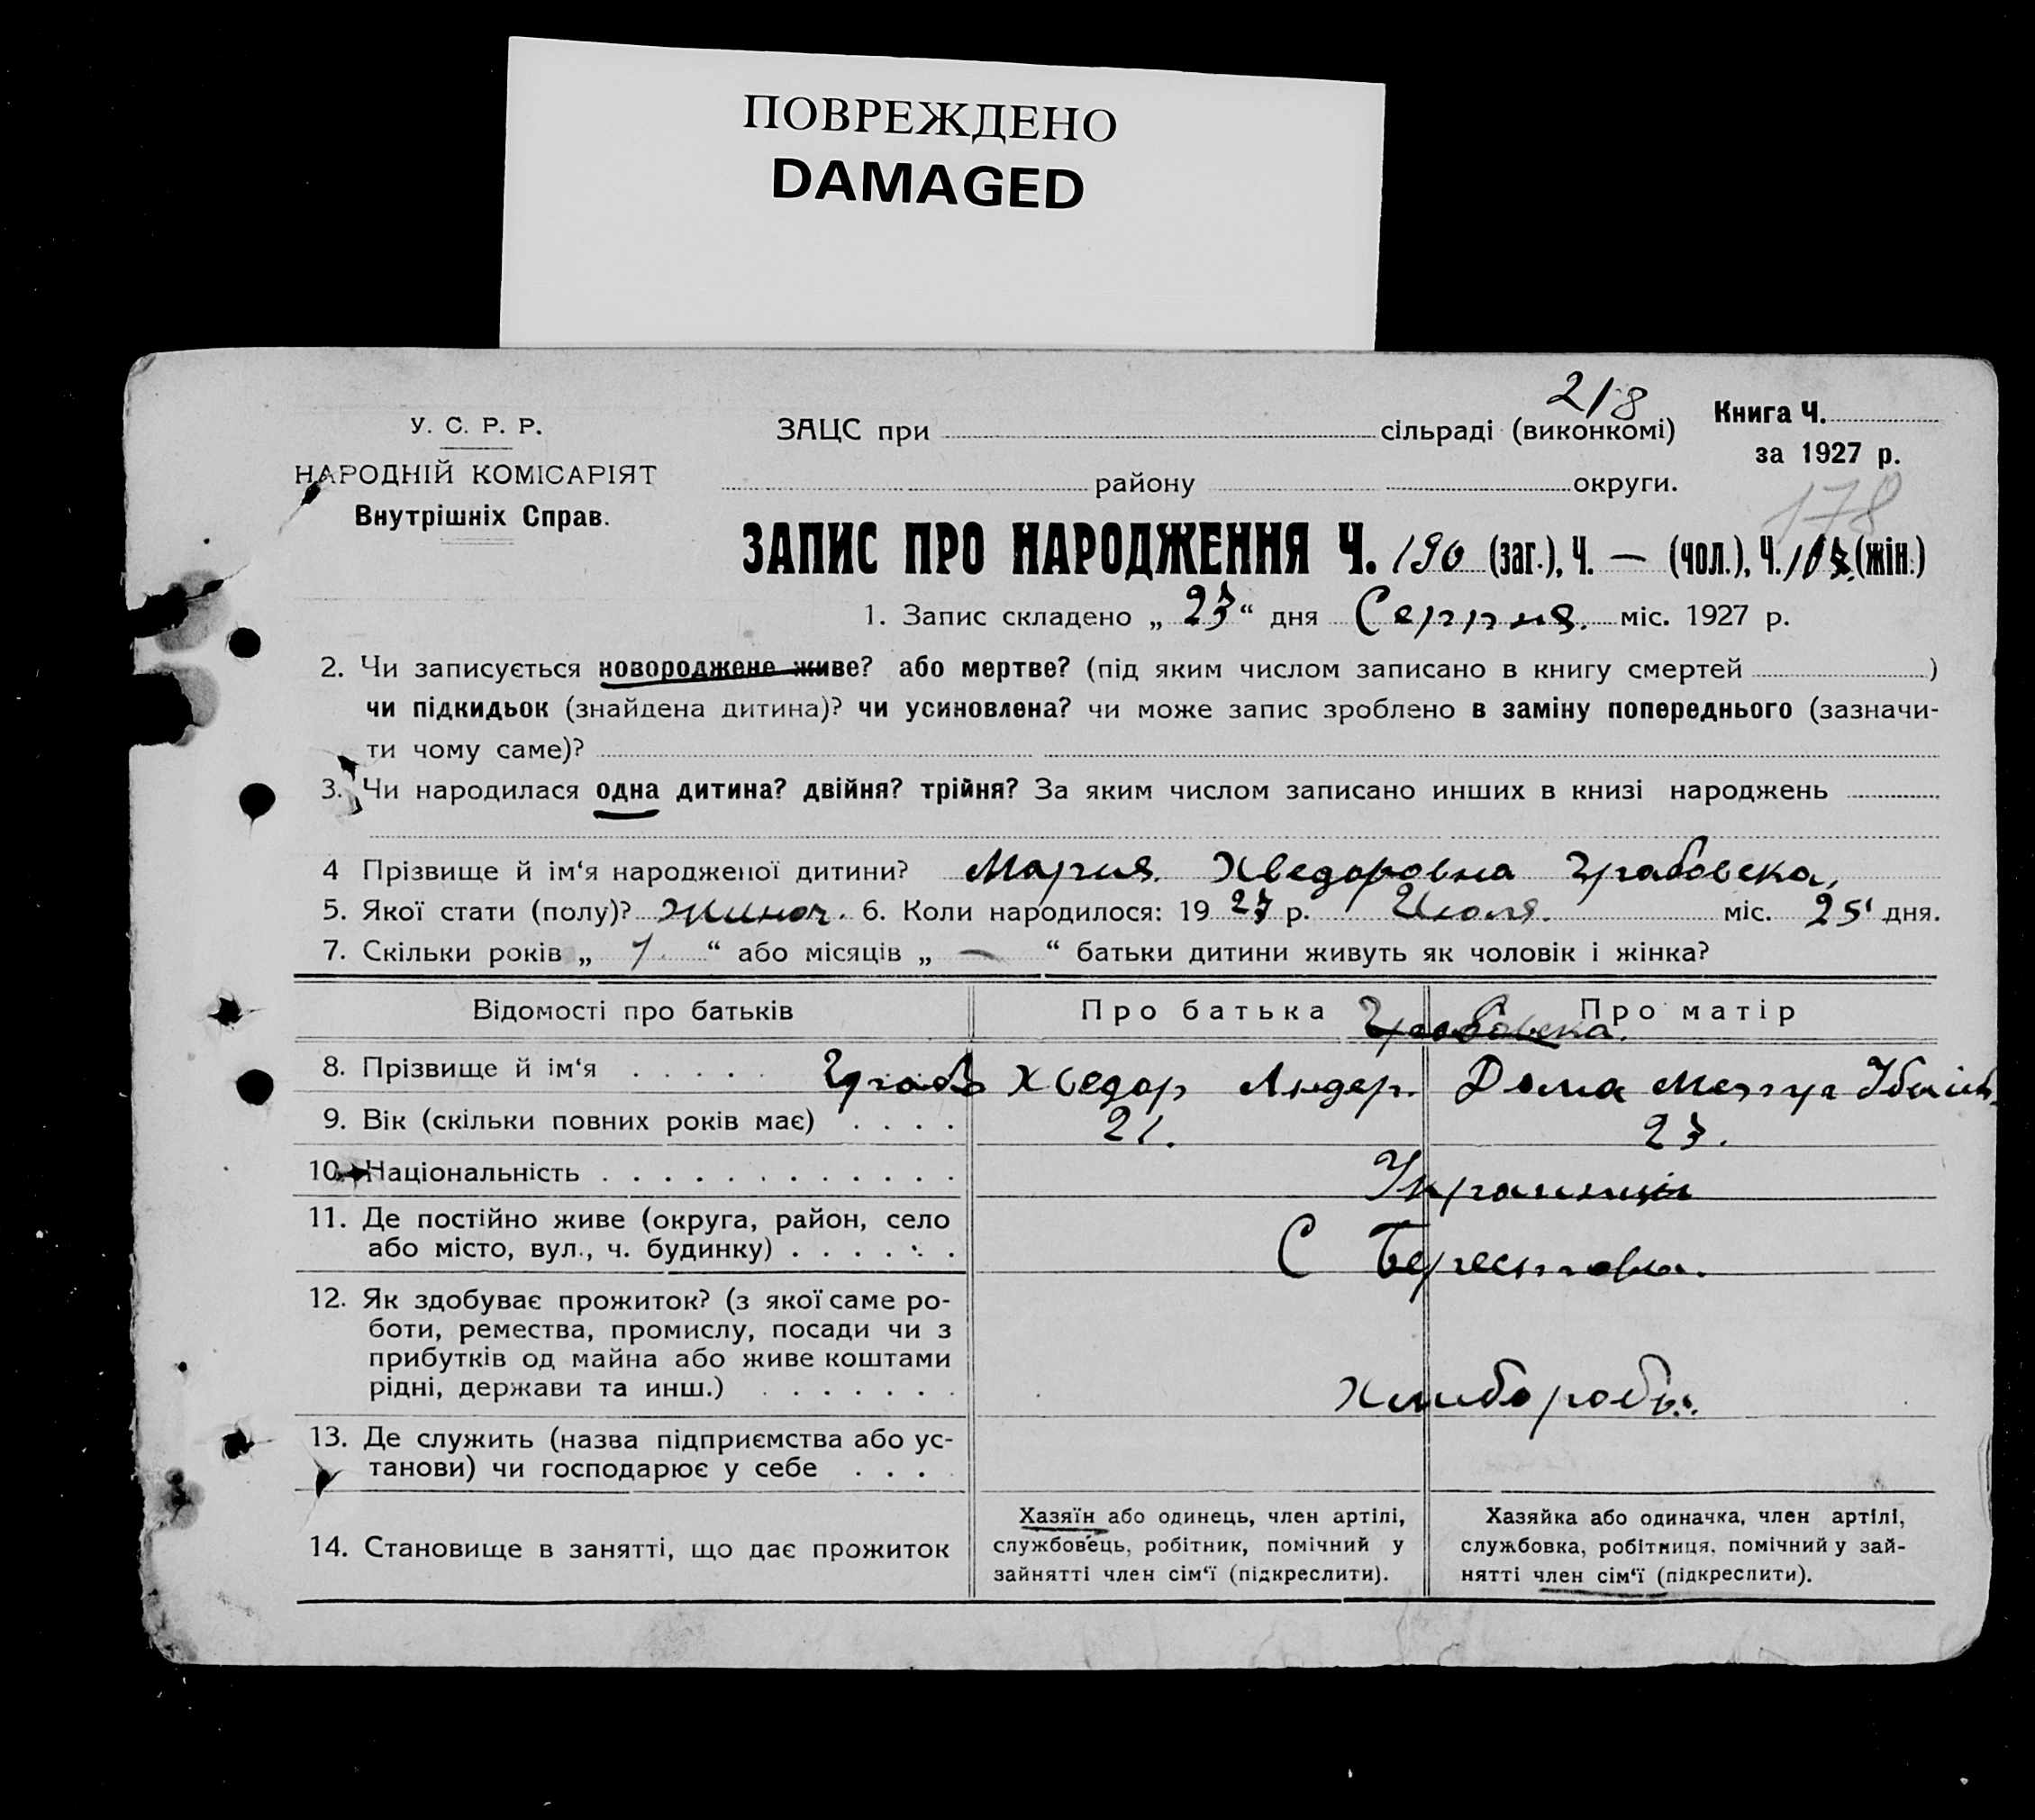 ПОВРЕЖДЕНО
DAMAGED
218
У. С. Р. Р.
НАРОДНІЙ КОМІСАРІЯТ
Внутрішніх Справ.
ЗАЦС при сільраді (виконкомі)
району округи.
Книга Ч.
за 1927 р.
178
ЗАПИС ПРО НАРОДЖЕННЯ Ч. 190 (заг.), Ч. — (чол.), Ч. (жін.)
1. Запис складено „ 23 “ дня Серпня. міс. 1927 р.
2. Чи записується новороджене живе? або мертве? (під яким числом записано в книгу смертей )
чи підкидьок (знайдена дитина)? чи усиновлена? чи може запис зроблено в заміну попереднього (зазначи-
ти чому саме)?
3. Чи народилася одна дитина? двійня? трійня? За яким числом записано инших в книзі народжень
4 Прізвище й ім‘я народженої дитини? Мария Хведоровна Грабовска,
5. Якої стати (полу)? жиноч. 6. Коли народилося: 1927 р. Июля. міс. 25 дня.
7. Скільки років „ 1 “ або місяців „ — “ батьки дитини живуть як чоловік і жінка?
Відомості про батьків Про батька Про матір
Грабовска.
8. Прізвище й ім‘я Хведор Андер. Дома
9. Вік (скільки повних років має) 21. 27.
10. Національність Украинци
11. Де постійно живе (округа, район, село
або місто, вул., ч. будинку) С Берестовка.
12. Як здобуває прожиток? (з якої саме ро-
боти, ремества, промислу, посади чи з
прибутків од майна або живе коштами
рідні, держави та инш.) Хлиборобы.
13. Де служить (назва підприємства або ус-
танови) чи господарює у себе
14. Становище в занятті, що дає прожиток
Хазяїн або одинець, член артілі,
службовець, робітник, помічний у
зайнятті член сім‘ї (підкреслити).
Хазяйка або одиначка, член артілі,
службовка, робітниця, помічний у зай-
нятті член сім‘ї (підкреслити).